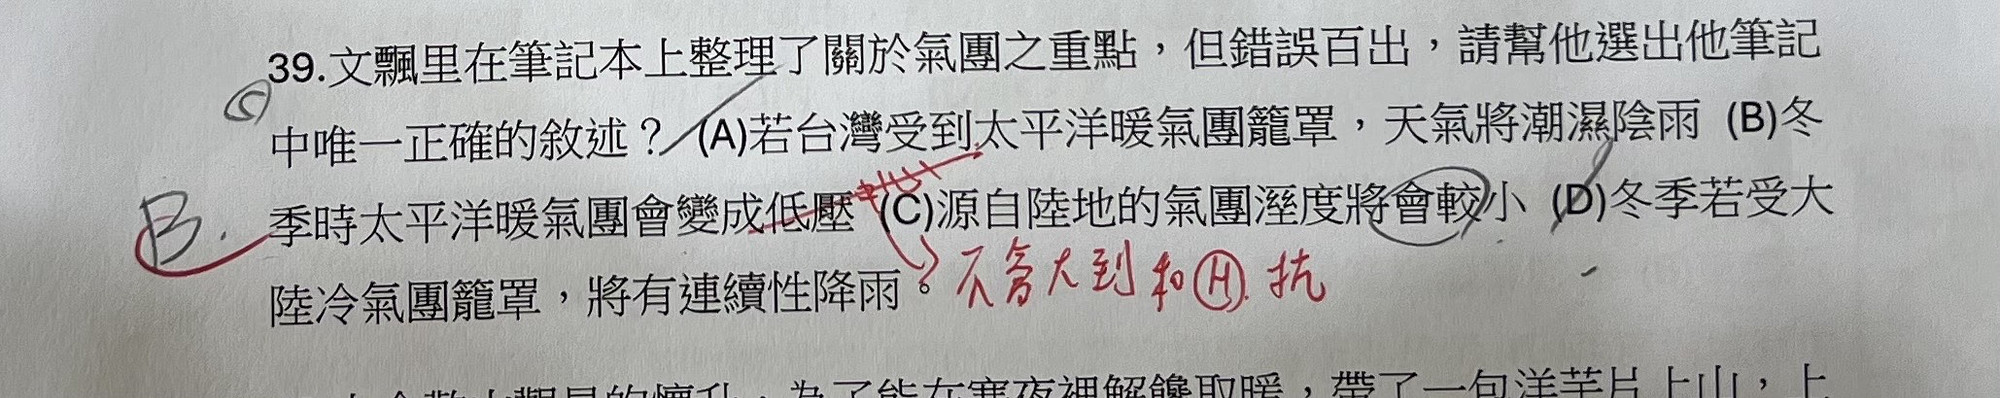 39.文飄里在筆記本上整理了關於氣團之重點，但錯誤百出，請幫他選出他筆記
中唯一正確的敘述？ (A)若台灣受到太平洋暖氣團籠罩，天氣將潮濕陰雨 (B)冬
B. 季時太平洋暖氣團會變成低壓 (C)源自陸地的氣團溼度將會較小 (D)冬季若受大
陸冷氣團籠罩，將有連續性降雨。 不會大到和H抗